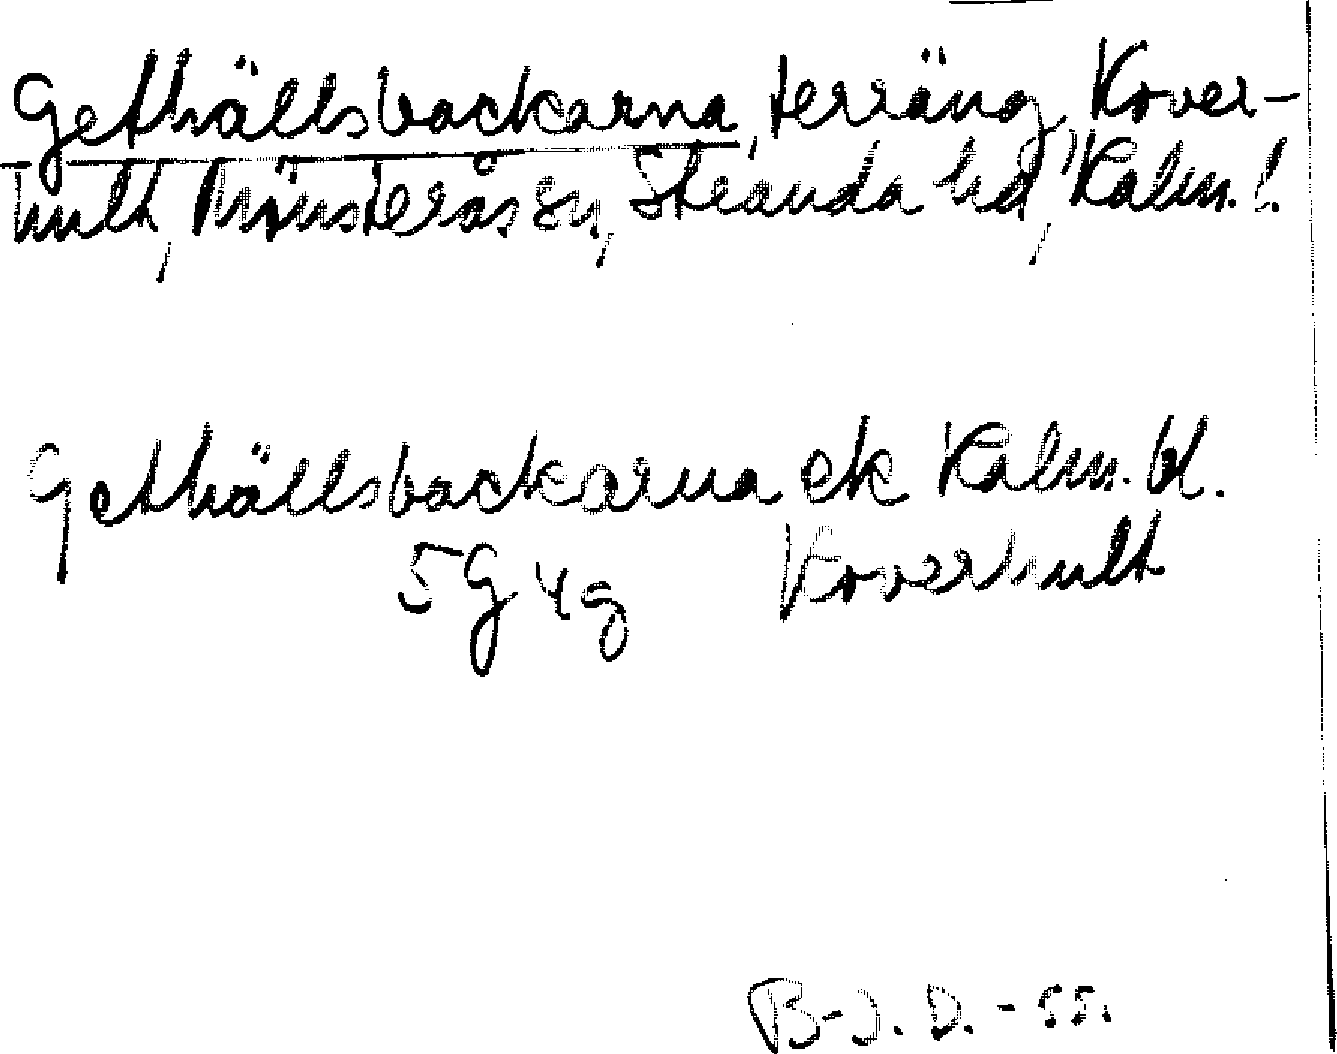 Gethällsbackarna, terräng, Kover-
hult, Mönsterås sn, Stranda hd, Kalm. l.
Gethällsbackarna ek Kalm. bl.
5G 4g Koverhult
B-J. D. - 55.